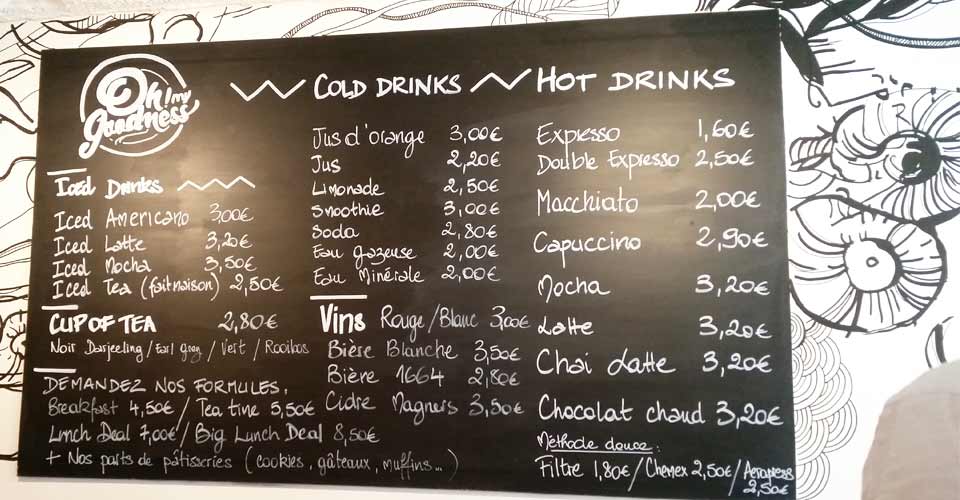 Oh! my
goodness
Iced Drinks
Iced Americano 3,00€
Iced Latte 3,20€
Iced Mocha 3,50€
Iced Tea (fait maison) 2,50€
CUP OF TEA 2,80€
Noir Darjeeling / Earl Grey / Vert / Rooibos
DEMANDEZ NOS FORMULES,
Breakfast 4,50€ / Tea tine 5,50€
Lunch Deal 7,00€ / Big Lunch Deal 8,50€
+ Nos parts de pâtisseries (cookies, gâteaux, muffins...)
COLD DRINKS
Jus d'orange 3,00€
Jus 2,20€
Limonade 2,50€
Smoothie 3,00€
Soda 2,80€
Eau gazeuse 2,00€
Eau Minérale 2,00€
Vins Rouge/Blanc 3,00€
Bière Blanche 3,50€
Bière 1664 2,80€
Cidre Magners 3,50€
HOT DRINKS
Expresso 1,60€
Double Expresso 2,50€
Macchiato 2,00€
Capuccino 2,90€
Mocha 3,20€
Latte 3,20€
Chai Latte 3,20€
Chocolat chaud 3,20€
Méthode douce :
Filtre 1,80€ / Chemex 2,50€ / Aeropress
2,50€